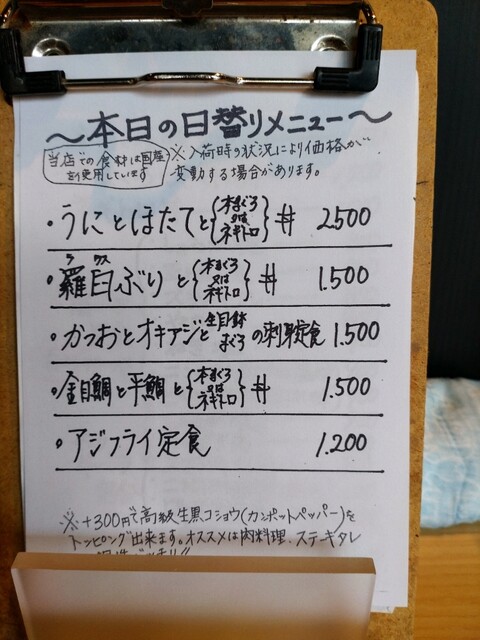 ～本日の日替りメニュー～
当店での食材は国産を使用しています
※入荷時の状況により価格が
変動する場合があります。
・うにとほたてと{本まぐろ又はネギトロ}丼 2.500
・羅臼ぶりと{本まぐろ又はネギトロ}丼 1.500
ラ ウス
・かつおとオキアジと生目鉢まぐろの刺身定食 1.500
・金目鯛と平鯛と{本まぐろ又はネギトロ}丼 1.500
・アジフライ定食 1.200
※+300円で高級生黒コショウ(カンポットペッパー)を
トッピング出来ます。オススメは肉料理、ステーキタレ